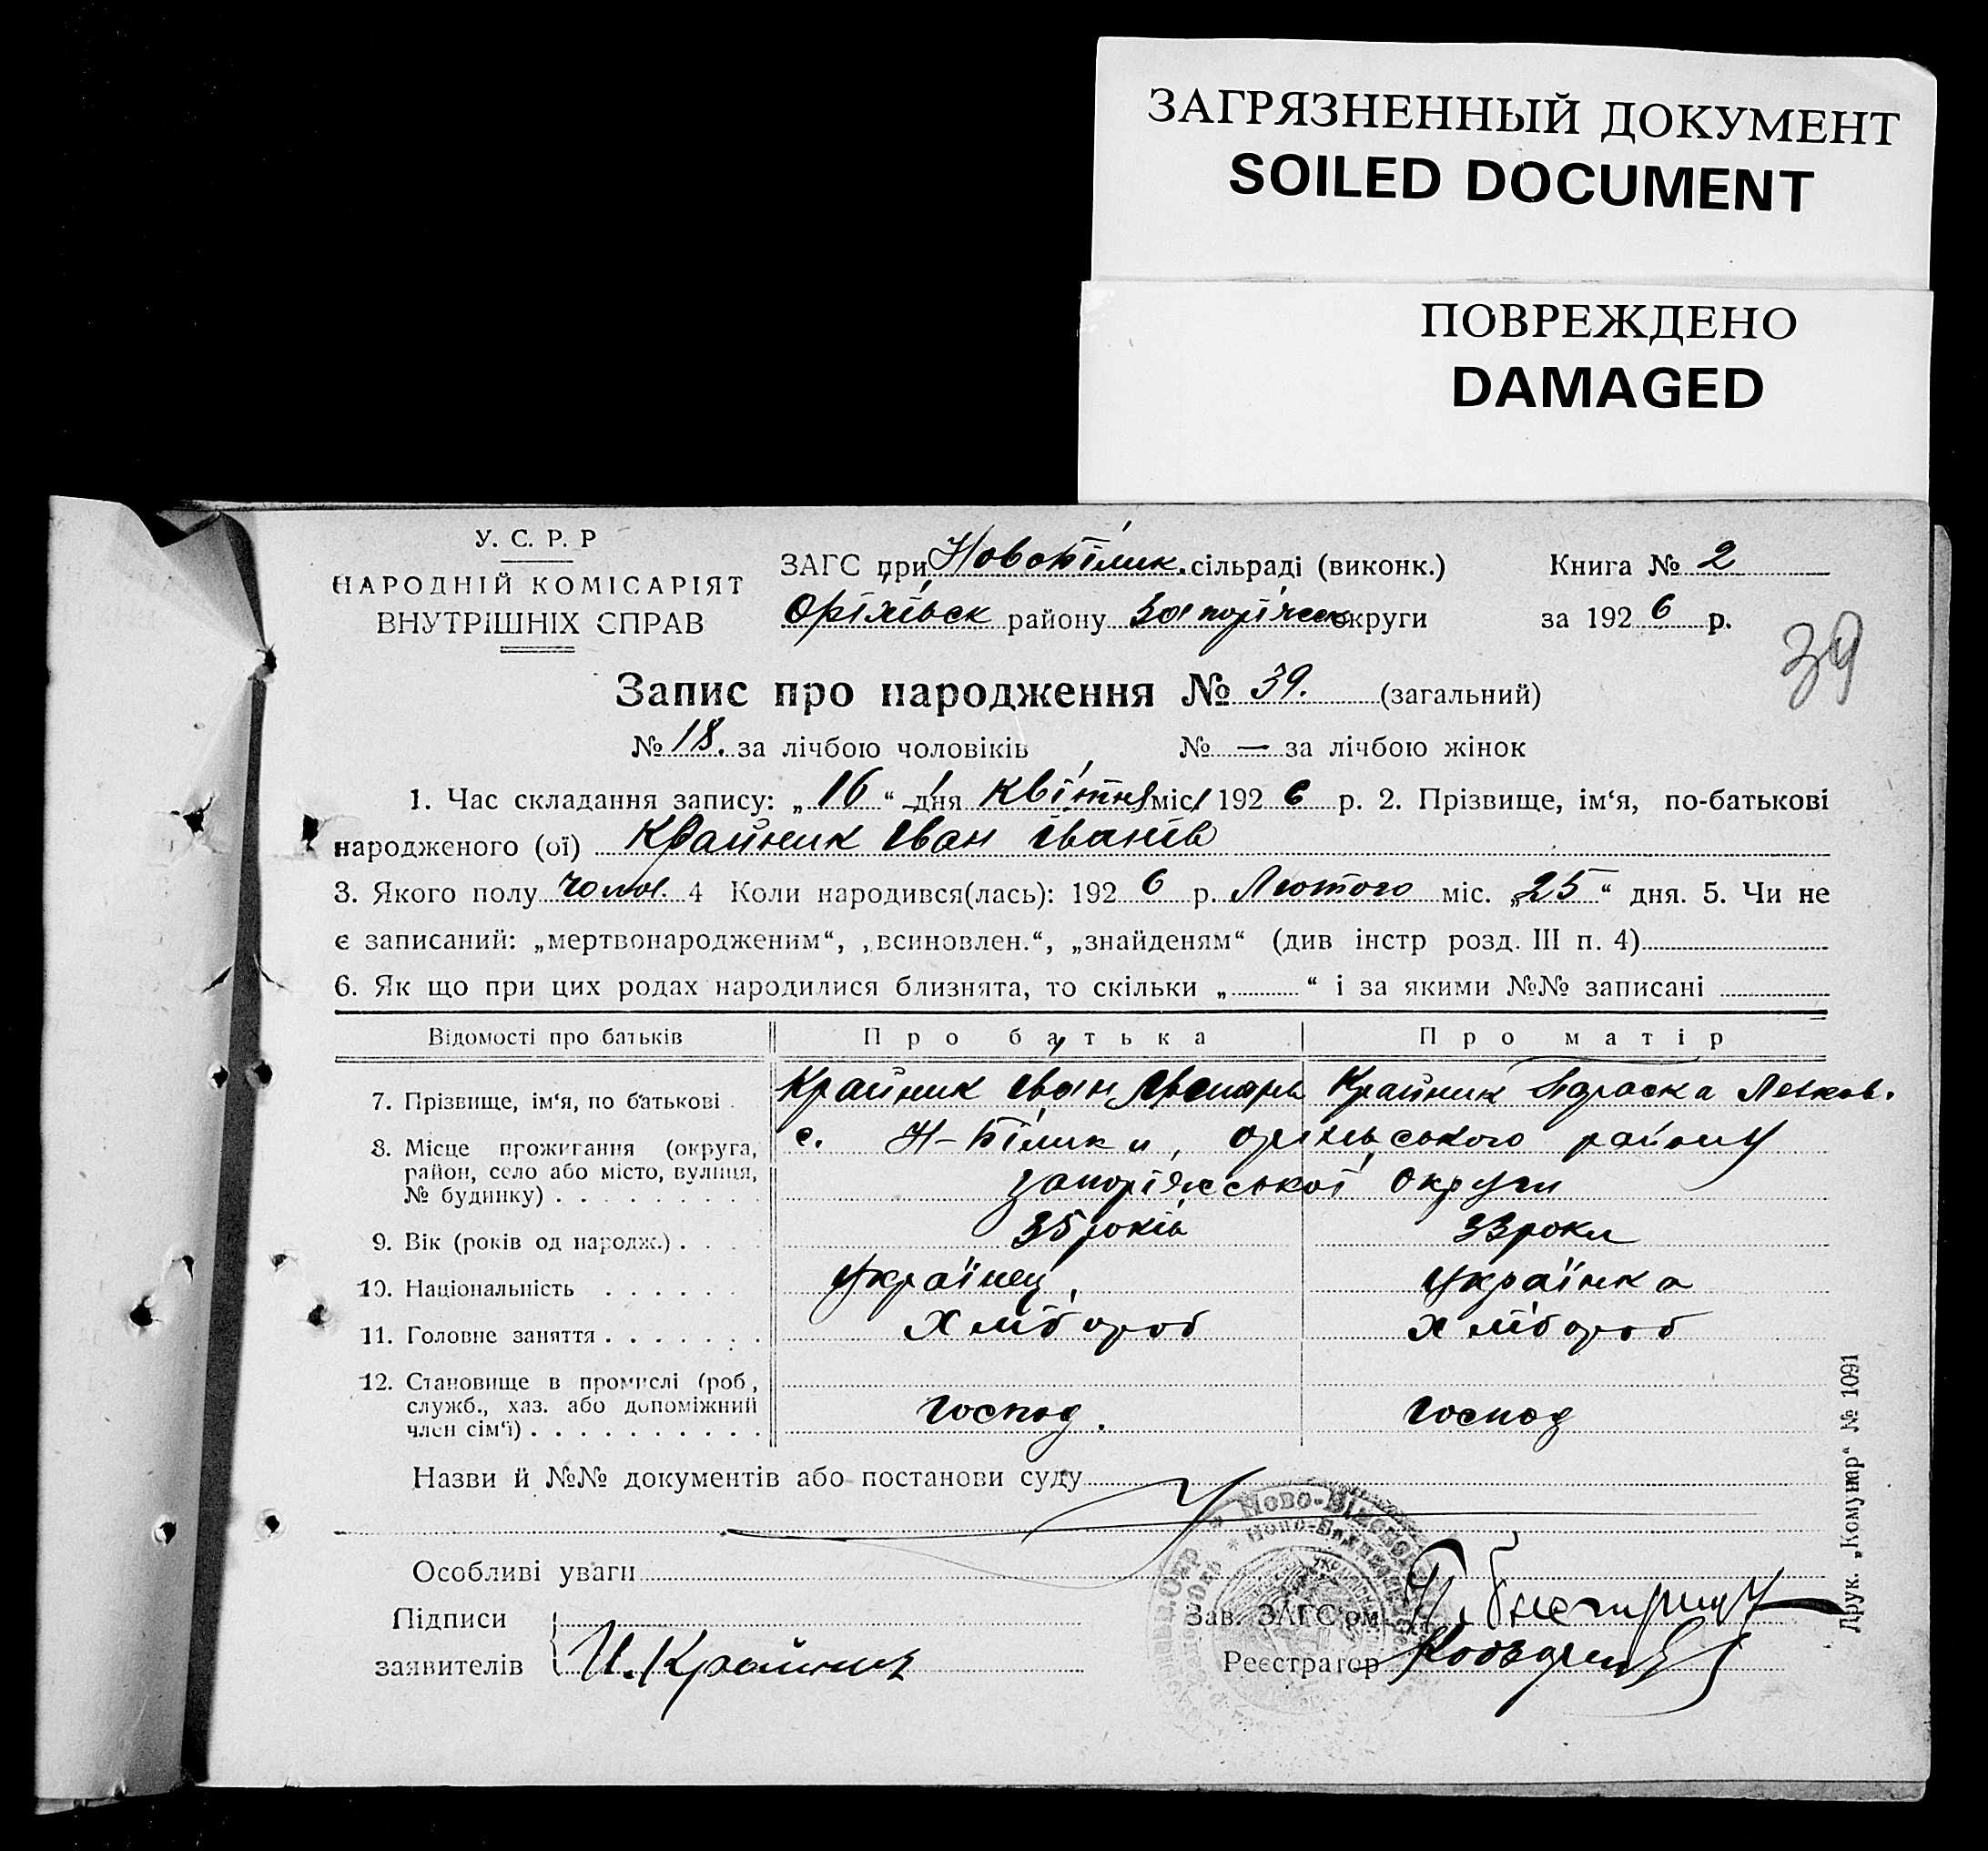 ЗАГРЯЗНЕННЫЙ ДОКУМЕНТ
SOILED DOCUMENT
ПОВРЕЖДЕНО
DAMAGED
У. С. Р. Р
НАРОДНІЙ КОМІСАРІЯТ
ВНУТРІШНІХ СПРАВ
ЗАГС при Новобілик. сільраді (виконк.) Книга № 2
Оріхівськ району Запоріжськ округи за 1926 р.
39
Запис про народження № 39. (загальний)
№ 18. за лічбою чоловіків № — за лічбою жінок
1. Час складання запису: „16“ дня квітня міс. 1926 р. 2. Прізвище, ім‘я, по-батькові
народженого (ої) Крайник Іван Іванів
3. Якого полу чолов. 4 Коли народився(лась): 1926 р. Лютого міс. „25“ дня. 5. Чи не
є записаний: „мертвонародженим“, „всиновлен.“, „знайденям“ (див інстр розд. III п. 4)
6. Як що при цих родах народилися близнята, то скільки „ “ і за якими №№ записані
Відомості про батьків Про батька Про матір
7. Прізвище, ім‘я, по батькові Крайник Іван Крайник Левков.
8. Місце прожигання (округа,
район, село або місто, вулиця,
№ будинку)
с. Н-Білики, Оріхівського району
Запоріжської Округи
9. Вік (років од народж.) 35 років 33 роки
10. Національність Українец Українка
11. Головне заняття Хлібороб Хлібороб
12. Становище в промислі (роб,
служб., хаз. або допоміжний
член сім‘ї)
господ. господ
Назви й №№ документів або постанови суду
Особливі уваги
Підписи
заявителів И. Крайник
Зав. ЗАГС‘ом
Реєстратор
Друк. „Комунар“ № 1091